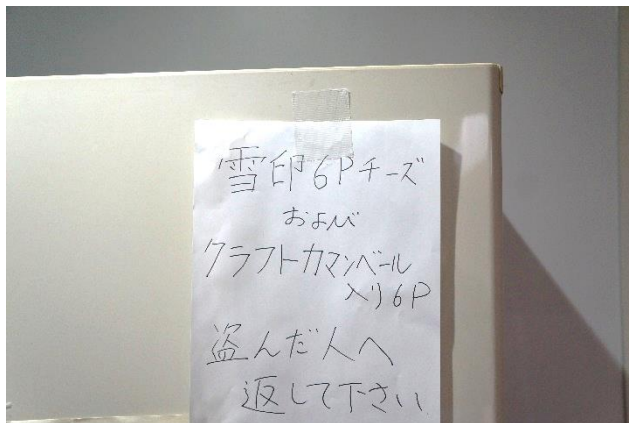 雪印6Pチーズ
および
クラフトカマンベール
入り6P
盗んだ人へ
返して下さい